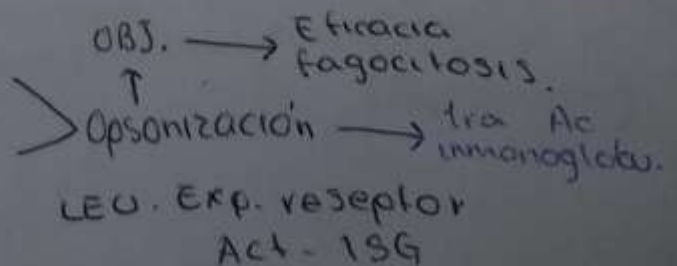 OBJ. → Eficacia
fagocitosis.
↑
Opsonización → tra Ac
inmonoglobu.
LEU. Exp. reseptor
Act - ISG